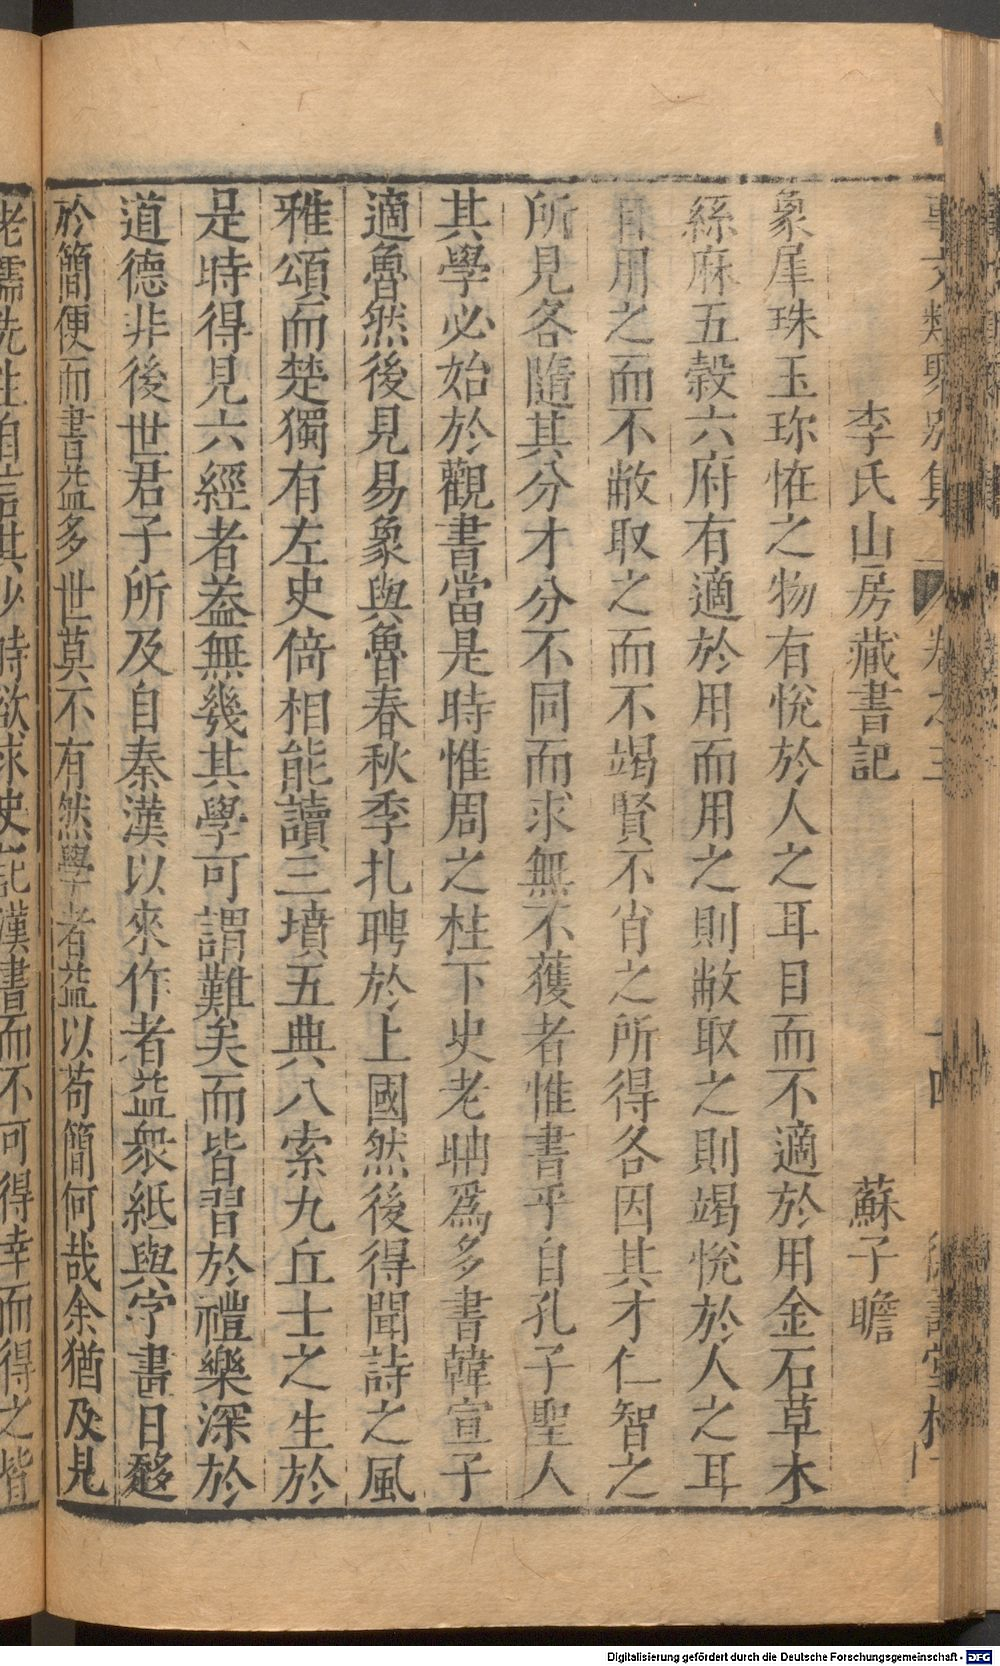 事文類聚別集 卷之三 十四
李氏山房藏書記 蘇子瞻
象犀珠玉珎恠之物有悅於人之耳目而不適於用金石草木
絲麻五穀六府有適於用而用之則敝取之則竭悅於人之耳
目用之而不敝取之而不竭賢不肖之所得各因其才仁智之
所見各隨其分才分不同而求無不獲者惟書乎自孔子聖人
其學必始於觀書當是時惟周之柱下史老聃爲多書韓宣子
適魯然後見易象與魯春秋季扎聘於上國然後得聞詩之風
雅頌而楚獨有左史倚相能讀三墳五典八索九丘士之生於
是時得見六經者葢無幾其學可謂難矣而皆習於禮樂深於
道德非後世君子所及自秦漢以來作者益衆紙與字畫日趍
於簡便而書益多世莫不有然學者益以苟簡何哉余猶及見
老儒先生自言其少時欲求史記漢書而不可得幸而得之皆
Digitalisierung gefördert durch die Deutsche Forschungsgemeinschaft - DFG